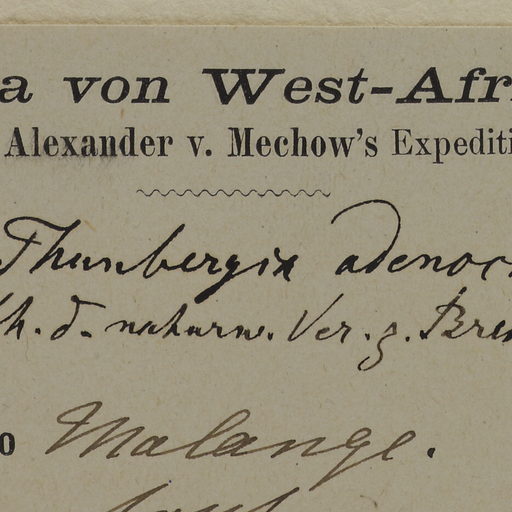 a von West-Afri
Alexander v. Mechow's Expediti
Thunbergia adenoc
h. d. naturw. Ver. z. Bre
o Malange.